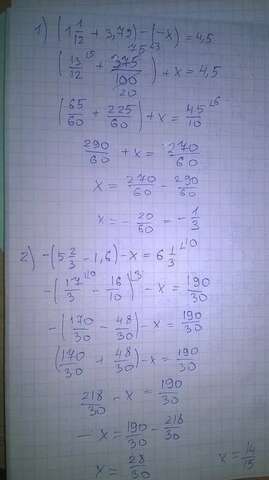 1) (1 1/12 + 3,75) - (-x) = 4,5
(13/12 + 375/100) + x = 4,5
20
(65/60 + 225/60) + x = 45/10
290/60 + x = 270/60
x = 270/60 - 290/60
x = - 20/60 = - 1/3
2) -(5 2/3 - 1,6) - x = 6 1/3
-(17/3 - 16/10) - x = 190/30
-(170/30 - 48/30) - x = 190/30
(170/30 + 48/30) - x = 190/30
218/30 - x = 190/30
- x = 190/30 - 218/30
x = 28/30
x = 14/15